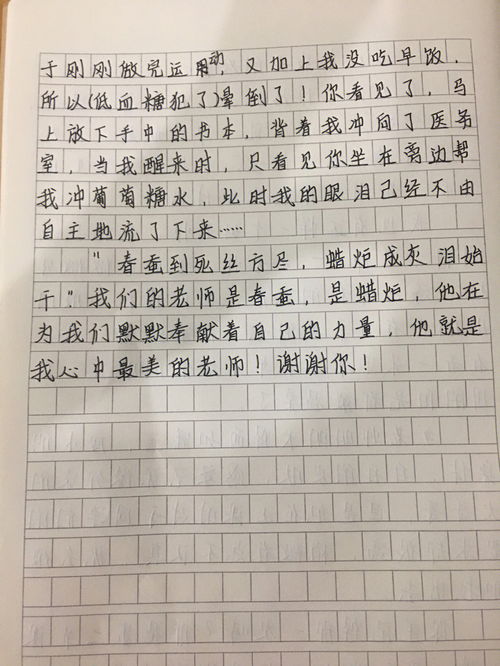 于刚刚做完运动，又加上我没吃早饭，
所以(低血糖犯了)晕倒了！你看见了，马
上放下手中的书本，背着我冲向了医务
室，当我醒来时，只看见你坐在旁边帮
我冲葡萄糖水，此时我的眼泪已经不由
自主地流了下来……
"春蚕到死丝方尽，蜡炬成灰泪始
干"我们的老师是春蚕，是蜡炬，他在
为我们默默奉献着自己的力量，他就是
我心中最美的老师！谢谢你！